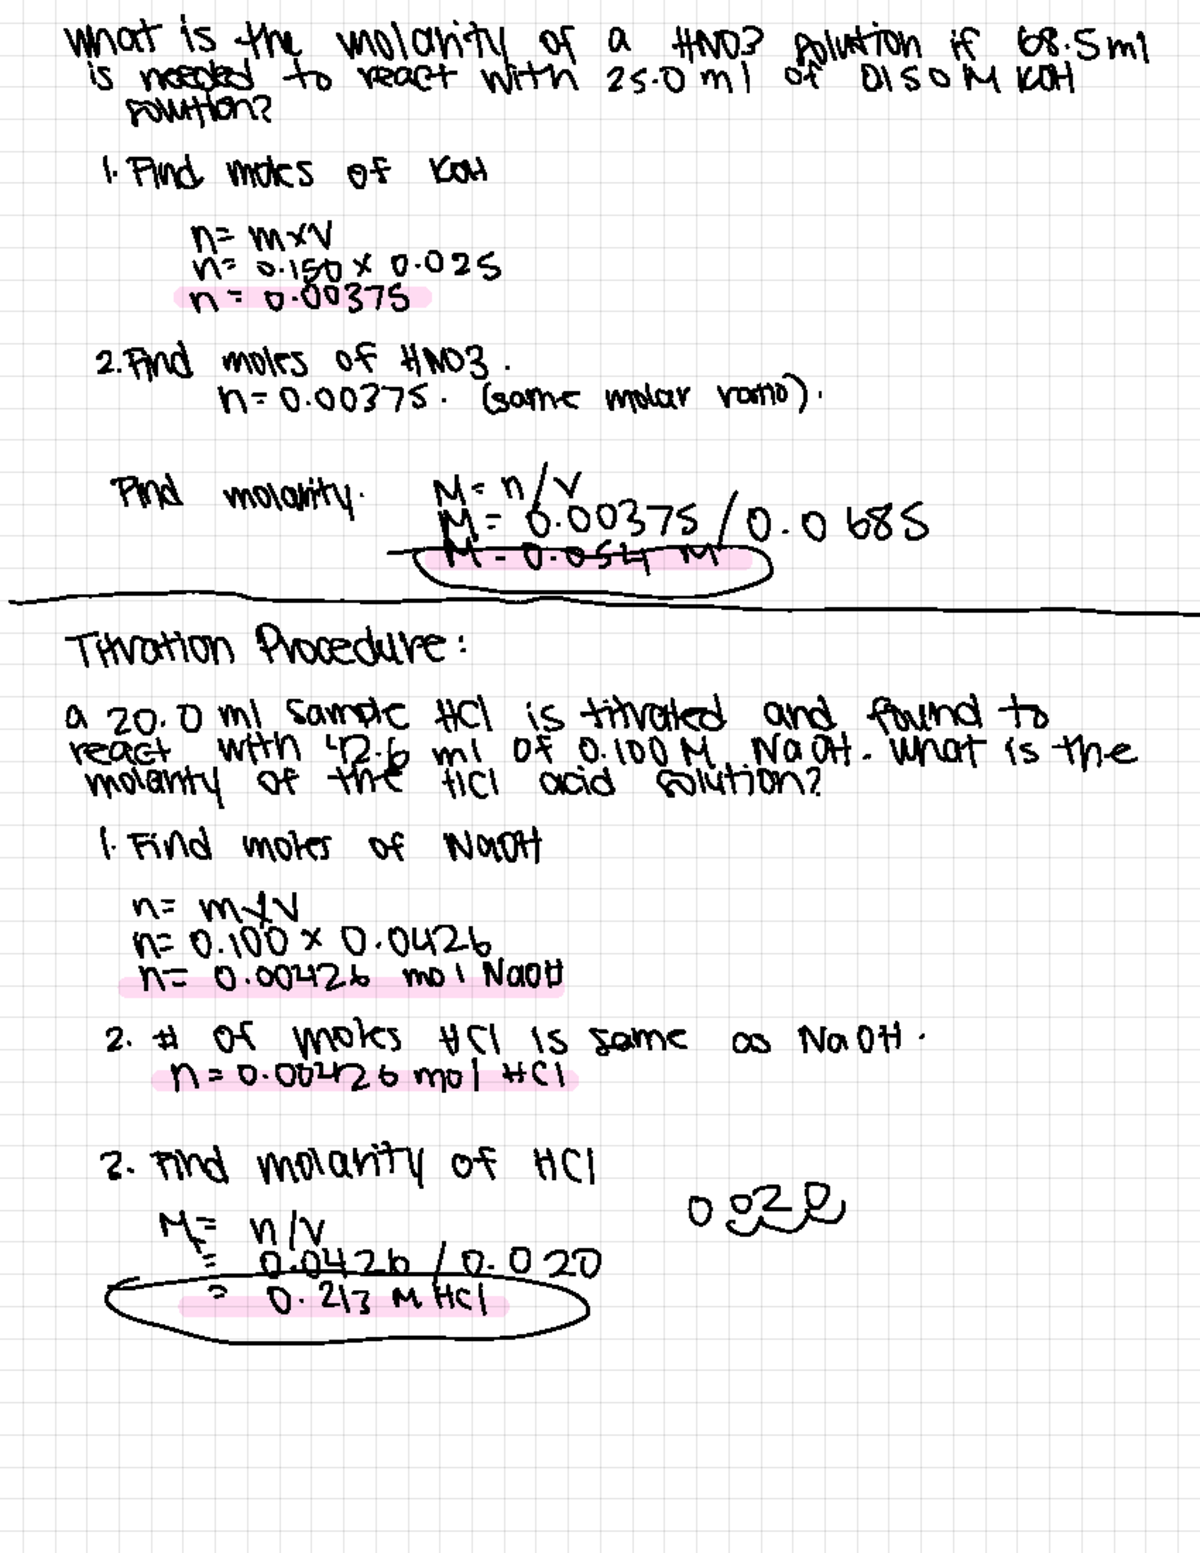 What is the molarity of a HNO3 solution if 68.5 ml
is needed to react with 25.0 ml of 0150 M KOH
solution?
1. Find moles of KOH
n= m×V
n= 0.150 × 0.025
n = 0.00375
2. Find moles of HNO3.
n= 0.00375. (same molar ratio).
Find molarity. M= n/V
M= 0.00375 / 0.0685
M = 0.054 M
Titration Procedure:
a 20.0 ml sample HCl is titrated and found to
react with 42.6 ml of 0.100 M NaOH. What is the
molarity of the HCl acid solution?
1. Find moles of NaOH
n= m×V
n= 0.100 × 0.0426
n= 0.00426 mol NaOH
2. # of moles HCl is same as NaOH.
n= 0.00426 mol HCl
3. Find molarity of HCl
M= n/V
= 0.0426 / 0.020
= 0.213 M HCl
0 020